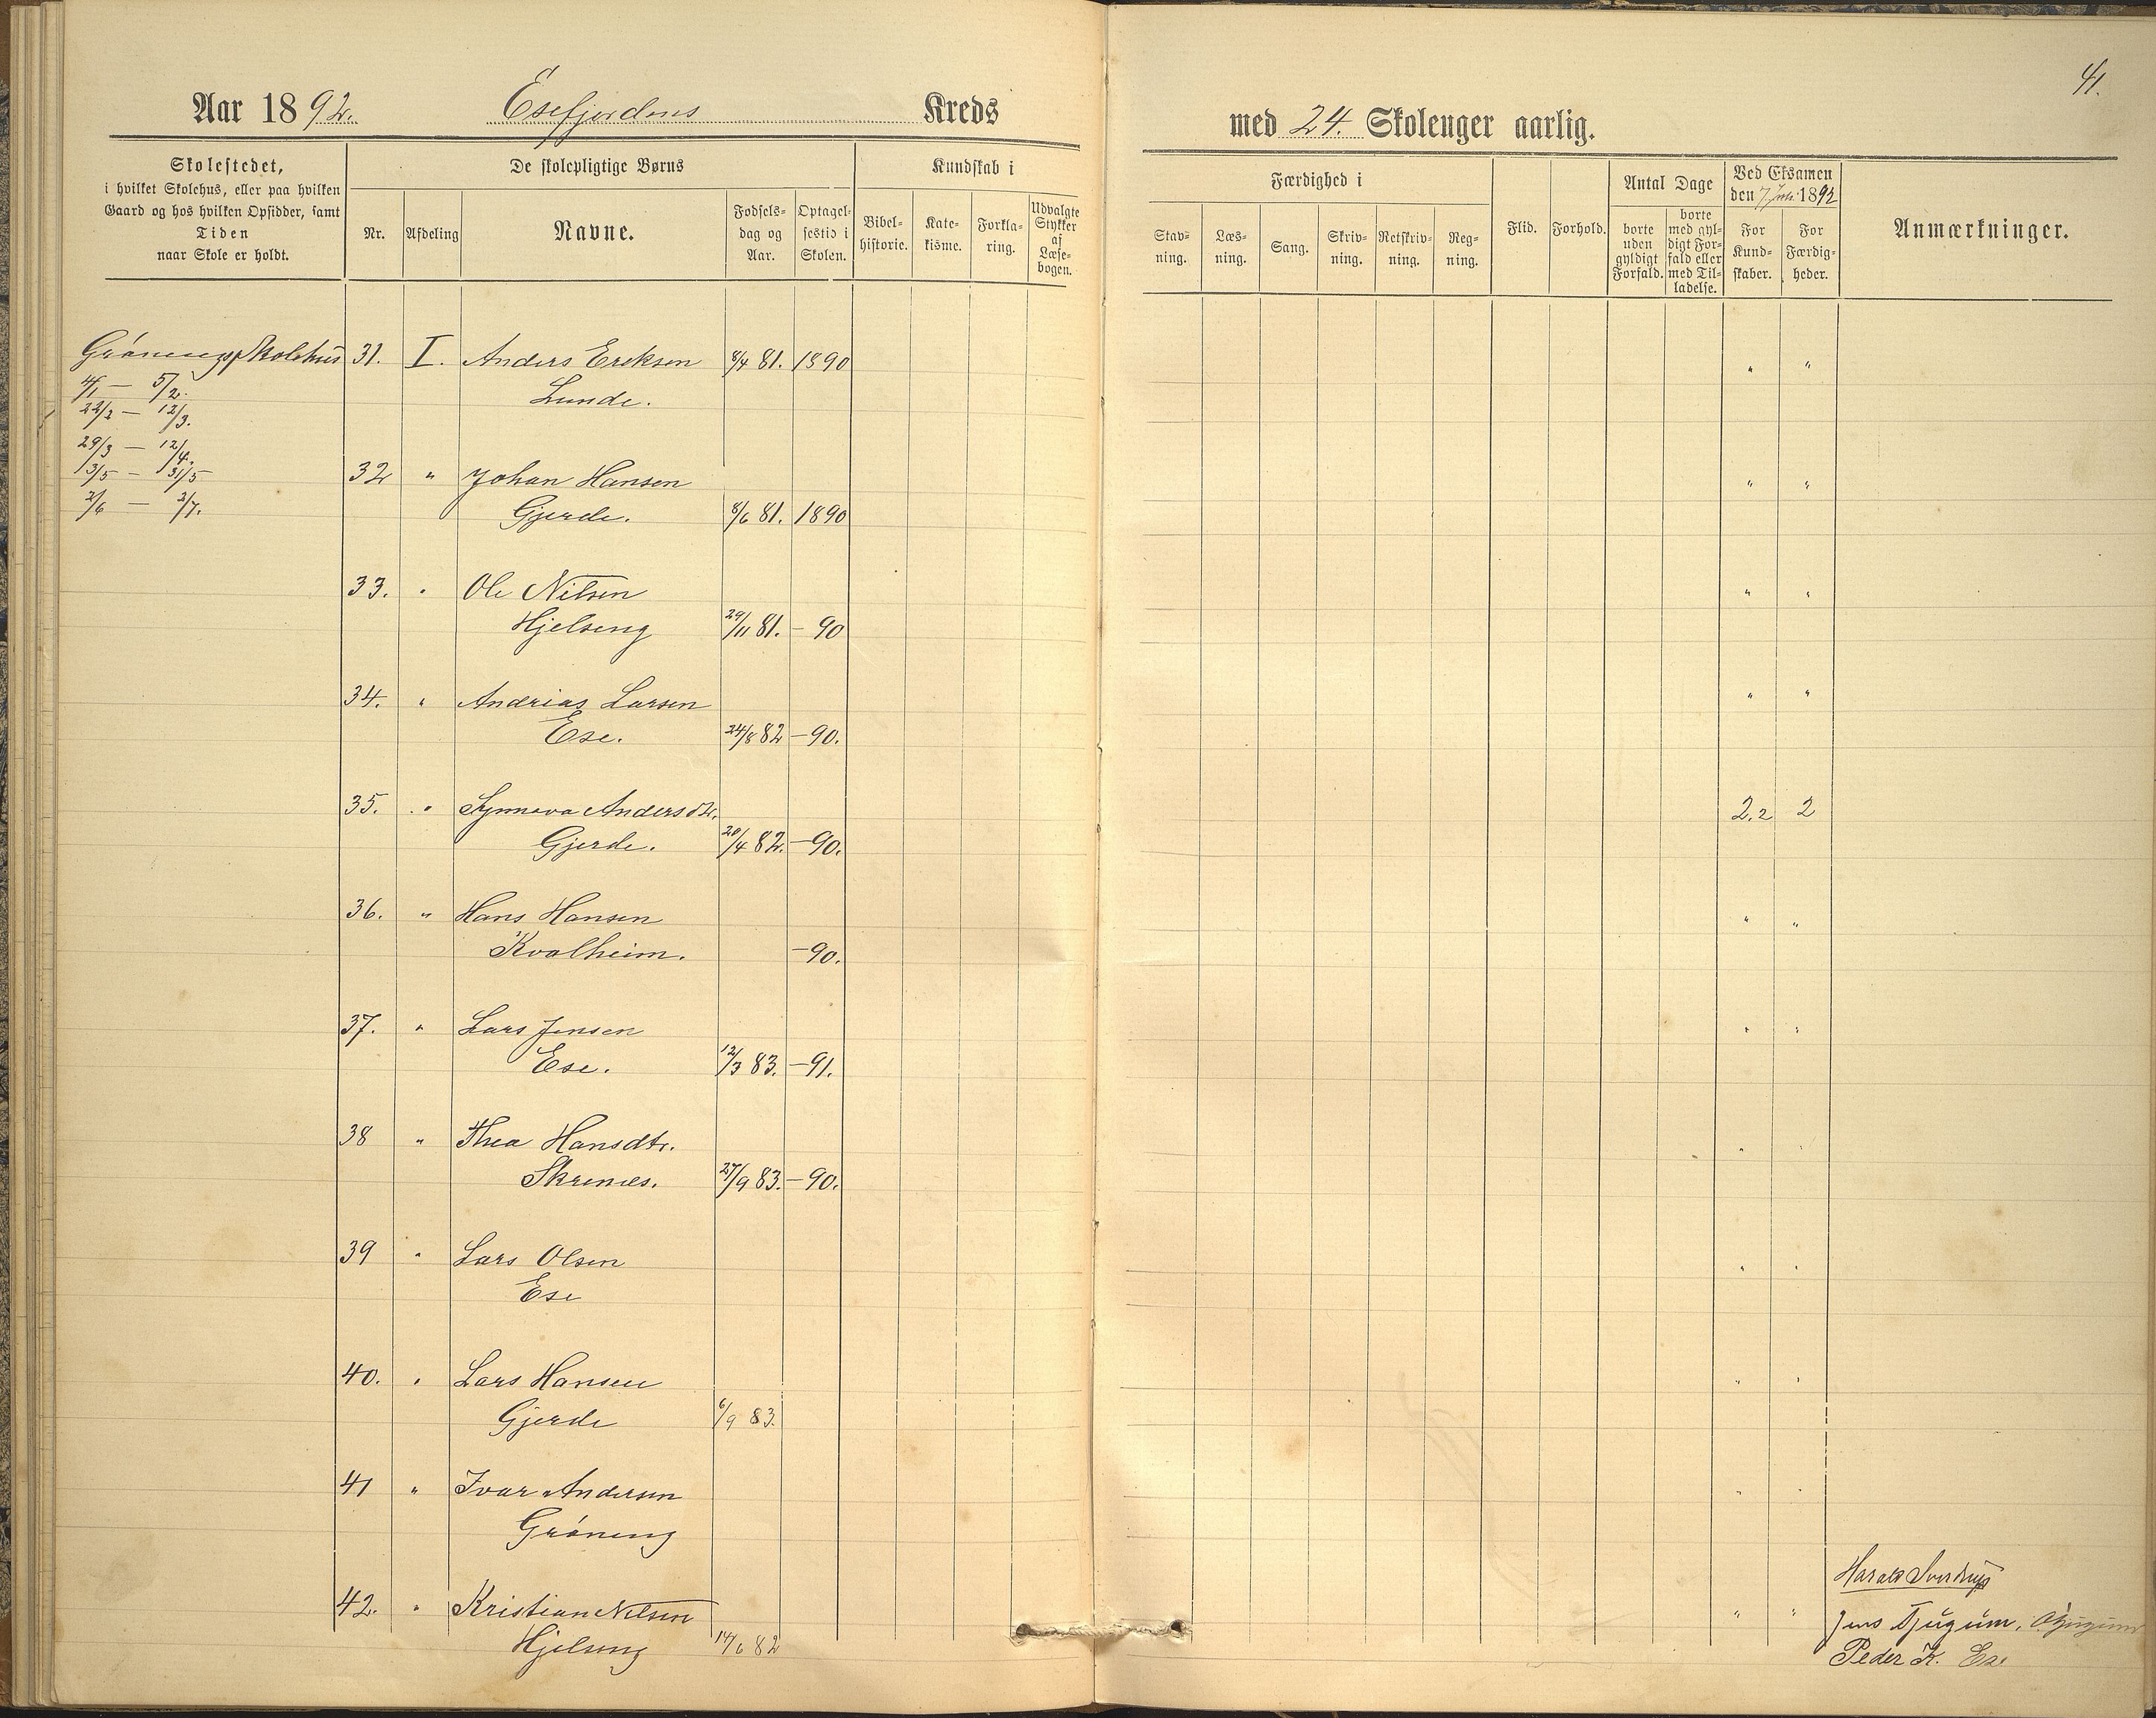 41.
Aar 1892. Esefjordens Kreds
med 24. Skoleuger aarlig.
Skolestedet,
i hvilket Skolehus, eller paa hvilken
Gaard og hos hvilken Opsidder, samt
Tiden
naar Skole er holdt.
De skolepligtige Børns
Nr.
Afdeling
Navne.
Fødsels-
dag og
Aar.
Optagel-
sestid i
Skolen.
Kundskab i
Bibel-
historie.
Kate-
kisme.
Forkla-
ring.
Udvalgte
Stykker
af
Læse-
bogen.
Færdighed i
Stav-
ning.
Læs-
ning.
Sang.
Skriv-
ning.
Retskriv-
ning.
Reg-
ning.
Flid.
Forhold.
Antal Dage
borte
uden
gyldigt
Forfald.
borte
med gyl-
digt For-
fald eller
med Til-
ladelse.
Ved Eksamen
den 7 Juli 1892
For
Kund-
skaber.
For
Færdig-
heder.
Anmærkninger.
Grónings Skolehus
4/1 — 5/2.
22/2 — 12/3.
29/3 — 12/4.
13/5 — 31/5
2/6 — 2/7.
31. I. Anders Eriksen 8/4 81. 1890 " "
Lunde.
32 " Johan Hansen " "
Gjerde. 8/6 81. 1890
33. " Ole Nilsen " "
Hjelseng 29/11 81. – 90
34. " Andrias Larsen " "
Ese. 24/8 82 – 90.
35. " Synneva Andersdtr. 2.2 2
Gjerde. 20/4 82. – 90.
36. " Hans Hansen " "
Kvalheim. – 90.
37. " Lars Jensen " "
Ese. 12/3 83. – 91.
38 " Thea Hansdtr. " "
Skrenes. 27/9 83. – 90.
39 " Lars Olsen " "
Ese
40. " Lars Hansen " "
Gjerde 6/9 83.
41 " Ivar Andersen " "
Gróning
42. " Kristian Nilsen " "
Hjelseng 14/6 82
Harald Sverdrup
Jens Tjugum.
Peder K. Ese